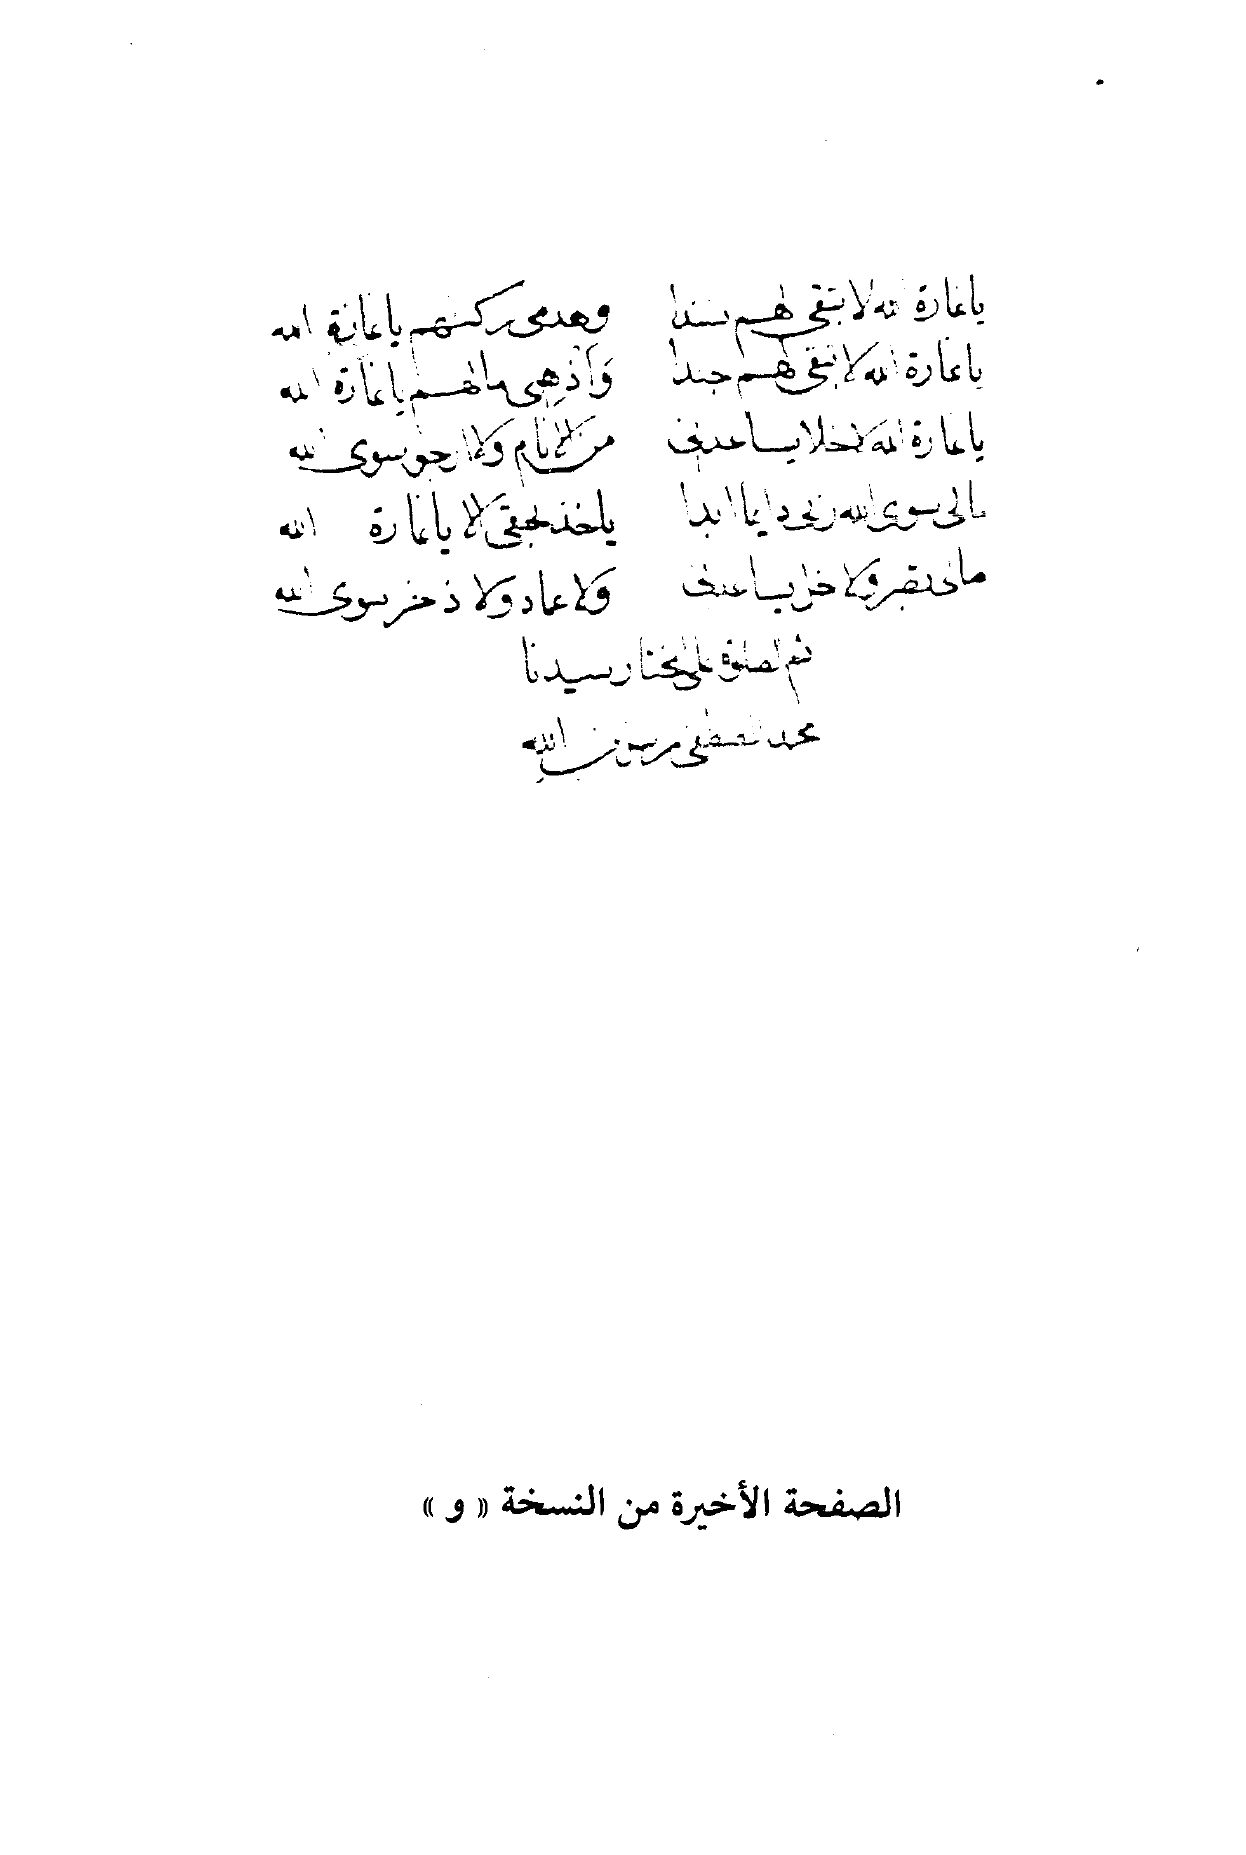 يا غارة الله لا تبقى لهم سندا وهدمى ركنهم يا غارة الله
يا غارة الله لا تبقى لهم جندا وَاذهِبى مالهم يا غارة الله
يا غارة الله لا خلا يساعدنى من الانام ولا ارجو سوى الله
مالى سوى الله ربى دايما ابدا ياخذ بحقى الا يا غارة الله
مالى نصير ولا خل يساعدنى ولا عماد ولا ذخر سوى الله
ثم الصلوة على المختار سيدنا
محمد المصطفى من الله
الصفحة الأخيرة من النسخة « و »